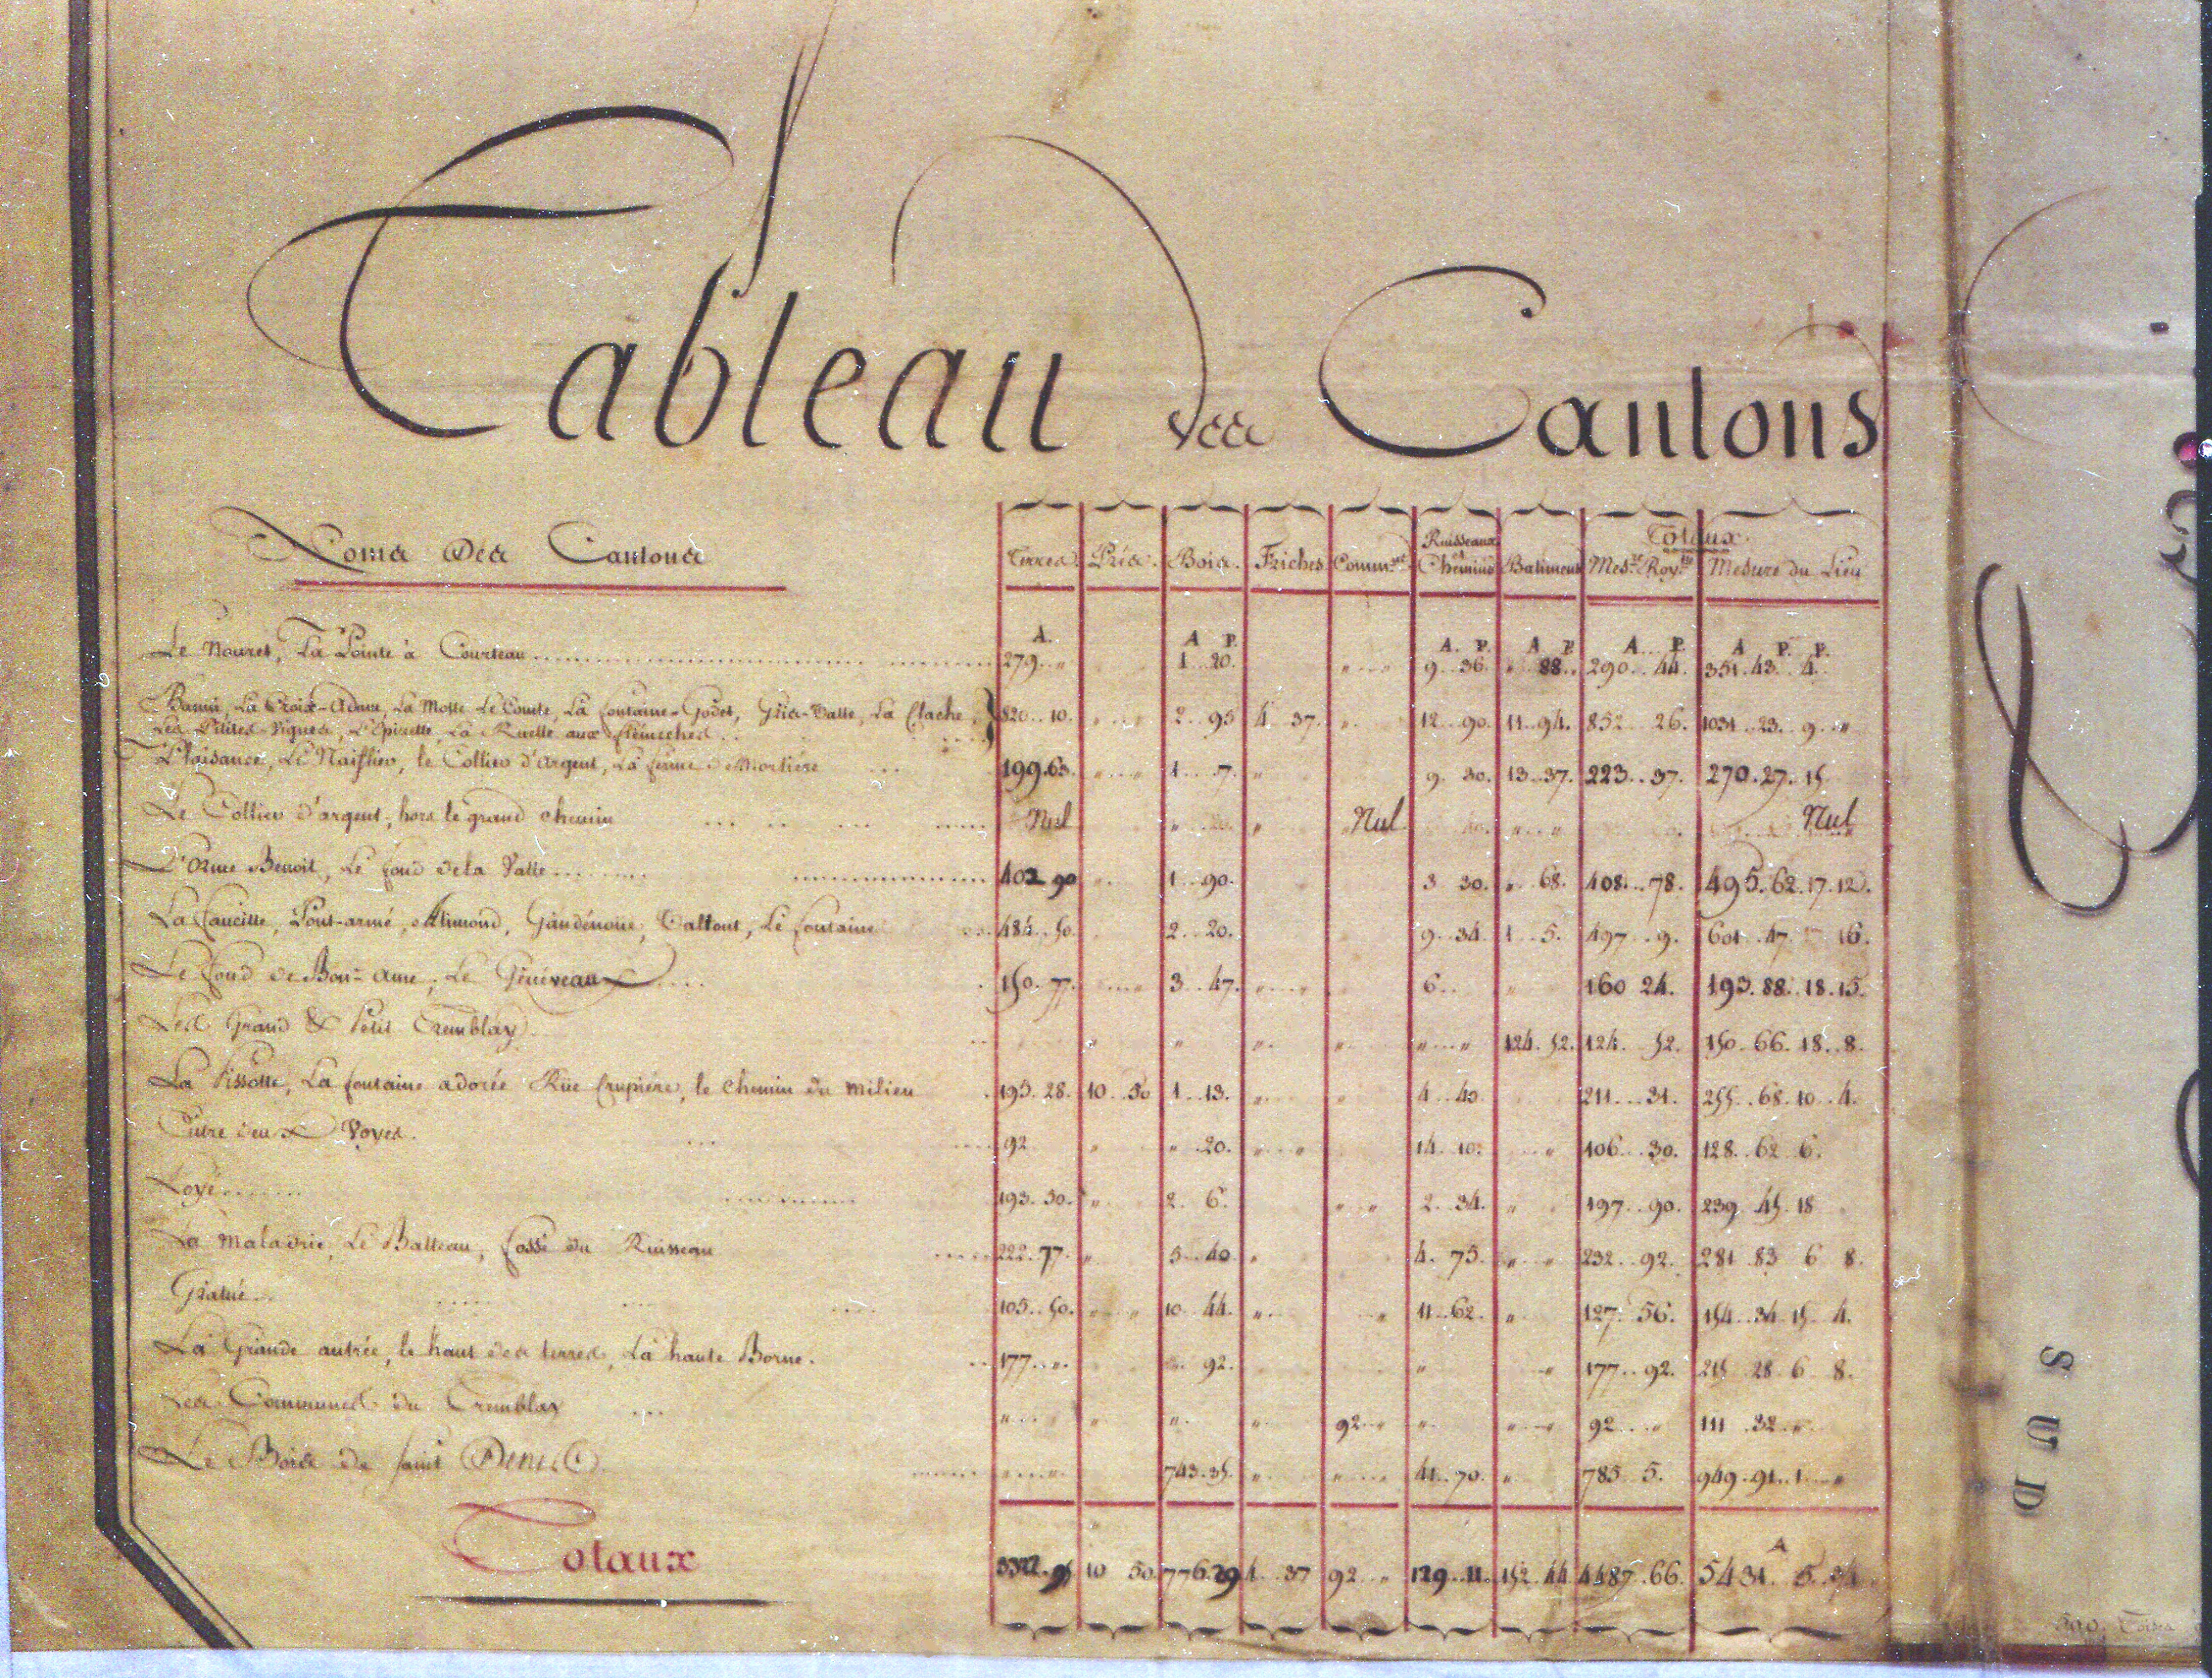 Tableau des Cantons
Noms Des Cantons
Terres. Prés. Bois. Friches Comm.nes Ruisseaux et Chemins Batimens Totaux. Mes.re Roy.le Mesure du Lieu
A. A P. A. P. A P A P. A P. P.
Le Nouret, La Pointe à Courteau 279 " 1 20. " " 9 36. " 88. 290 44. 351. 43. 4.
La Croix-Adam, La Motte Le Comte, La fontaine-Godet, La flache
Les Petites Vignes, L'Epinette, La Ruelle aux 820 10. 2 95 4 37. 12 90. 11 94. 852 26. 1031 23. 9. "
Plaisance, le Collier d'argent, La ferme 199.63. " 1 7. " 9. 30. 13 37. 223 37. 270. 27. 15
Le Collier d'argent, hors le grand chemin Nul Nul Nul
L'Orme Benoit, Le fond de la Valle 402 90 1 90. 3 30. " 68. 408 78. 495. 62. 17. 12.
La faucille, Pont-armé, Le fontaine 484 50. 2 20. 9 34. 1 5. 497 9. 601 47 16.
Le fond de Bon- ame, Le Géneveaux 150. 77. 3 47. 6 " 160 24. 193. 88. 18. 15.
Les Grand & Petit Tremblay. " " " " " 124. 52. 124. 52. 150. 66. 18. 8.
La Pissotte, La fontaine adorée Rüe Crupiére, le chemin du milieu 195 28. 10 50 1 13. 4 40 211 31. 255. 68. 10 4.
Entre deux Voyes. 92 " " 20. 14. 10. " 106 30. 128. 62 6.
Loyé 193. 50. " 2. 6. " " 2. 34. " 197 90. 239 45 18
La maladrie, Le Batteau, fossé du Ruisseau 222. 77. " 5 40. " 4. 75. " " 232 92. 281 83 6 8.
105 50. " 10 44. " " 11 62. " 127. 56. 154 34 15 4.
La Grande entrée, le haut des terres, La haute Borne. 177 " 92. " " 177 92. 215 28 6 8.
Les Communes du Tremblay " " " " 92 " " " 92 " 111 32 "
Le Bois de saint Denis " 743. 35. " " 41 70. " 785 5. 949 91 1 "
Totaux 10 50. 776.29 4 37 92 " 129 11. 152 44 4487. 66. 5431. A
SUD